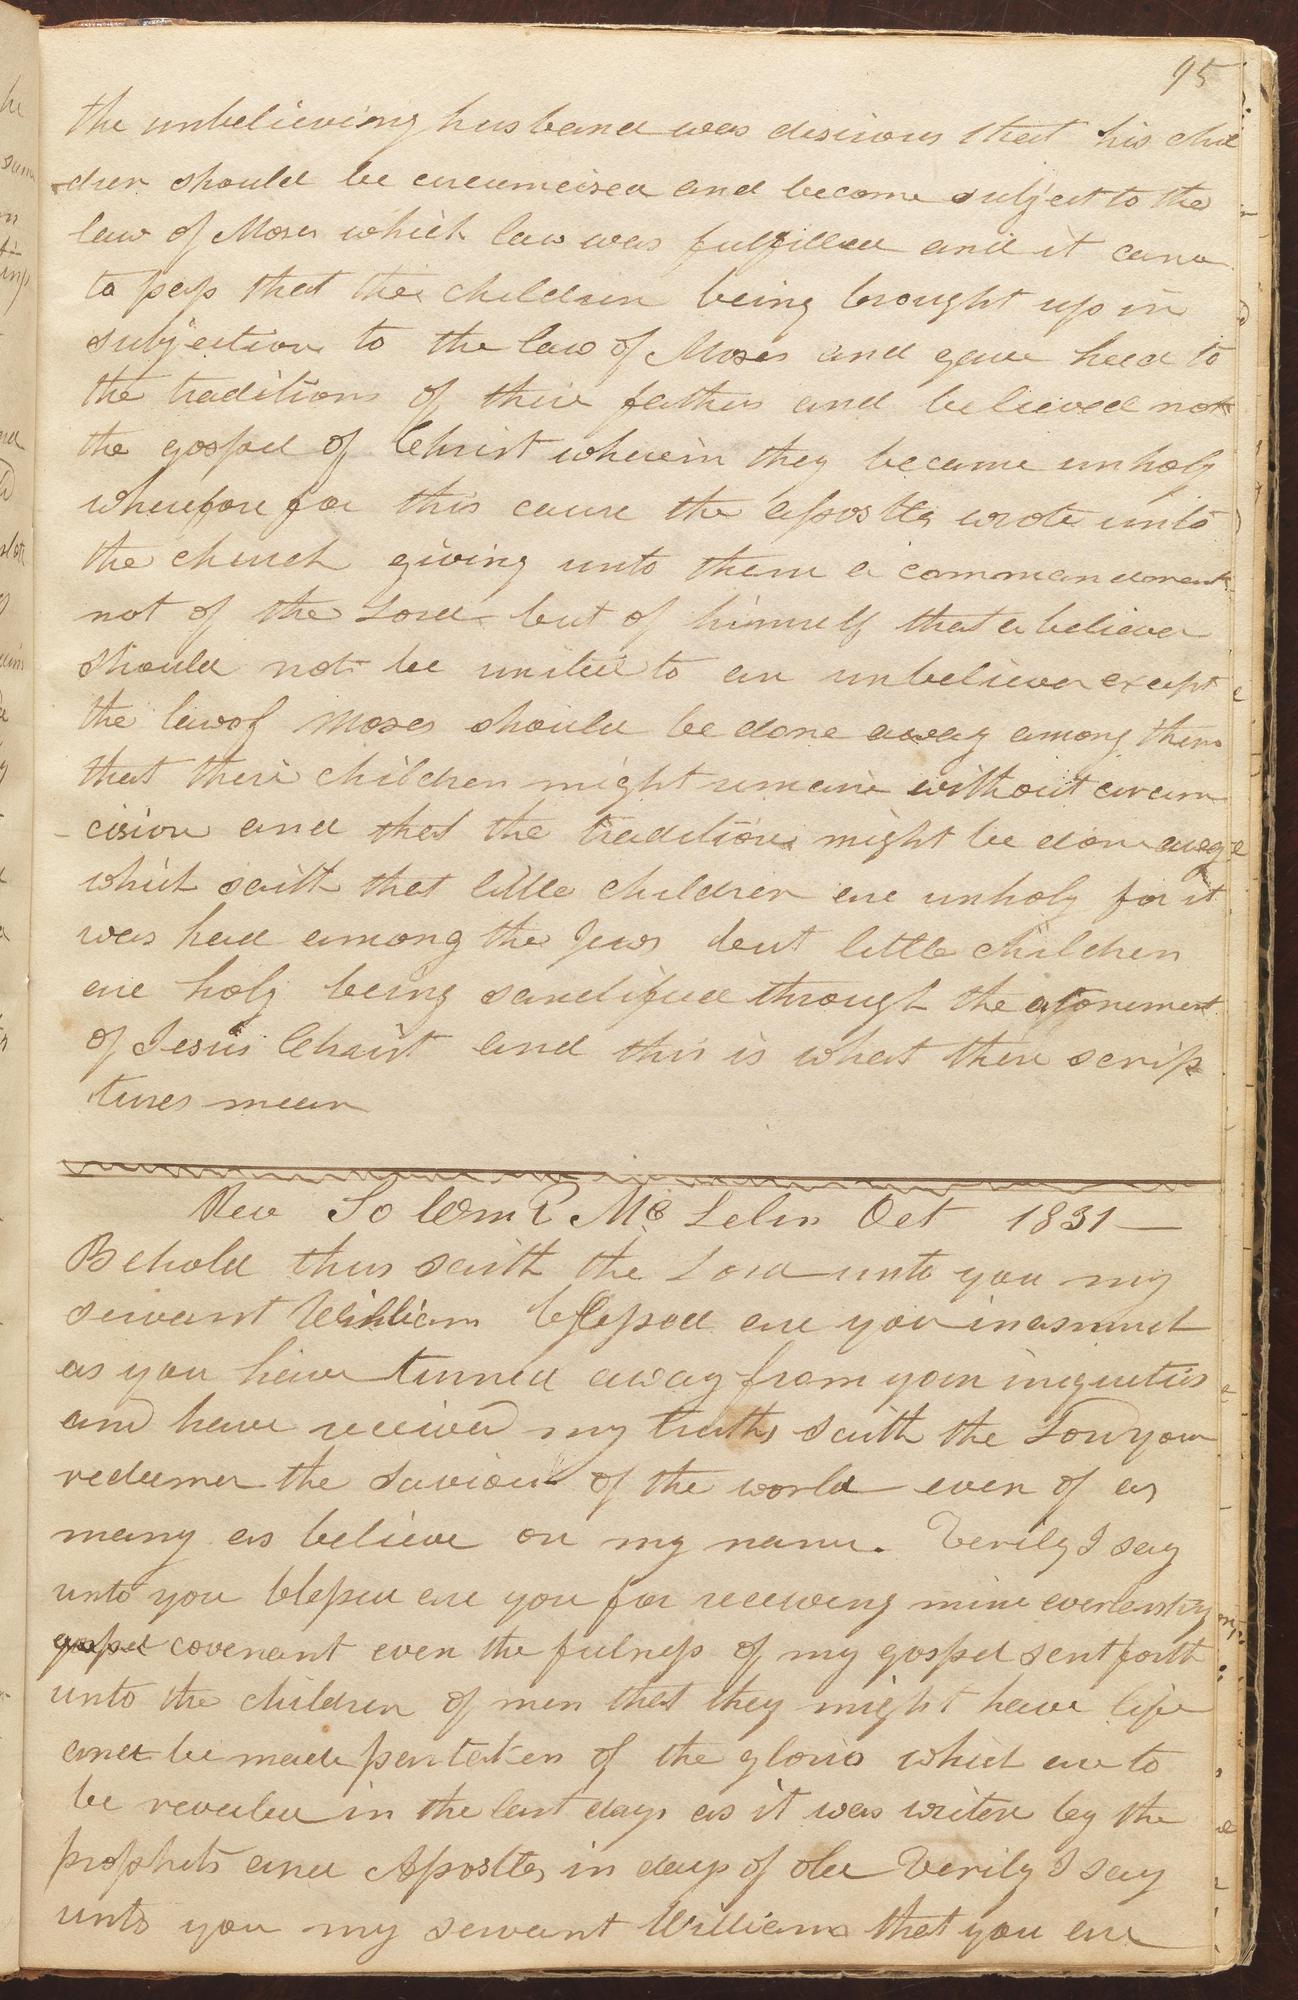 95
the unbelieveing husband was desirous that his chil
dren should be circumcised and become subject to the
law of Moses which law was fulfilled and it came
to pass that the children being brought up in
subjection to the law of Moses and gave heed to
the traditions of their fathers and believed not
the gospel of Christ wherein they became unholy
wherefore for this cause the apostle wrote unto
the church giving unto them a commandment
not of the Lord but of himself that a believer
should not be united to an unbeliever except
the law of Moses should be done away among them
that their children might remain without circum
cision and that the tradition might be done away
which saith that little children are unholy for it
was had among the Jews but little children
are holy being sanctified through the atonement
of Jesus Christ and this is what the scrip
tures mean
Rev To Wm E Mc Lelin Oct 1831
Behold thus saith the Lord unto you my
servant William blessed are you inasmuch
as you have turned away from your iniquities
and have received my truths saith the Lord your
redeemer the Saviour of the world even of as
many as believe on my name. Verily I say
unto you blessed are you for receiving mine everlasting
gospel covenant even the fulness of my gospel sent forth
unto the children of men that they might have life
and be made partaken of the glories which are to
be revealed in the last days as it was writen by the
prophets and Apostles in days of old Verily I say
unto you my servant William that you are